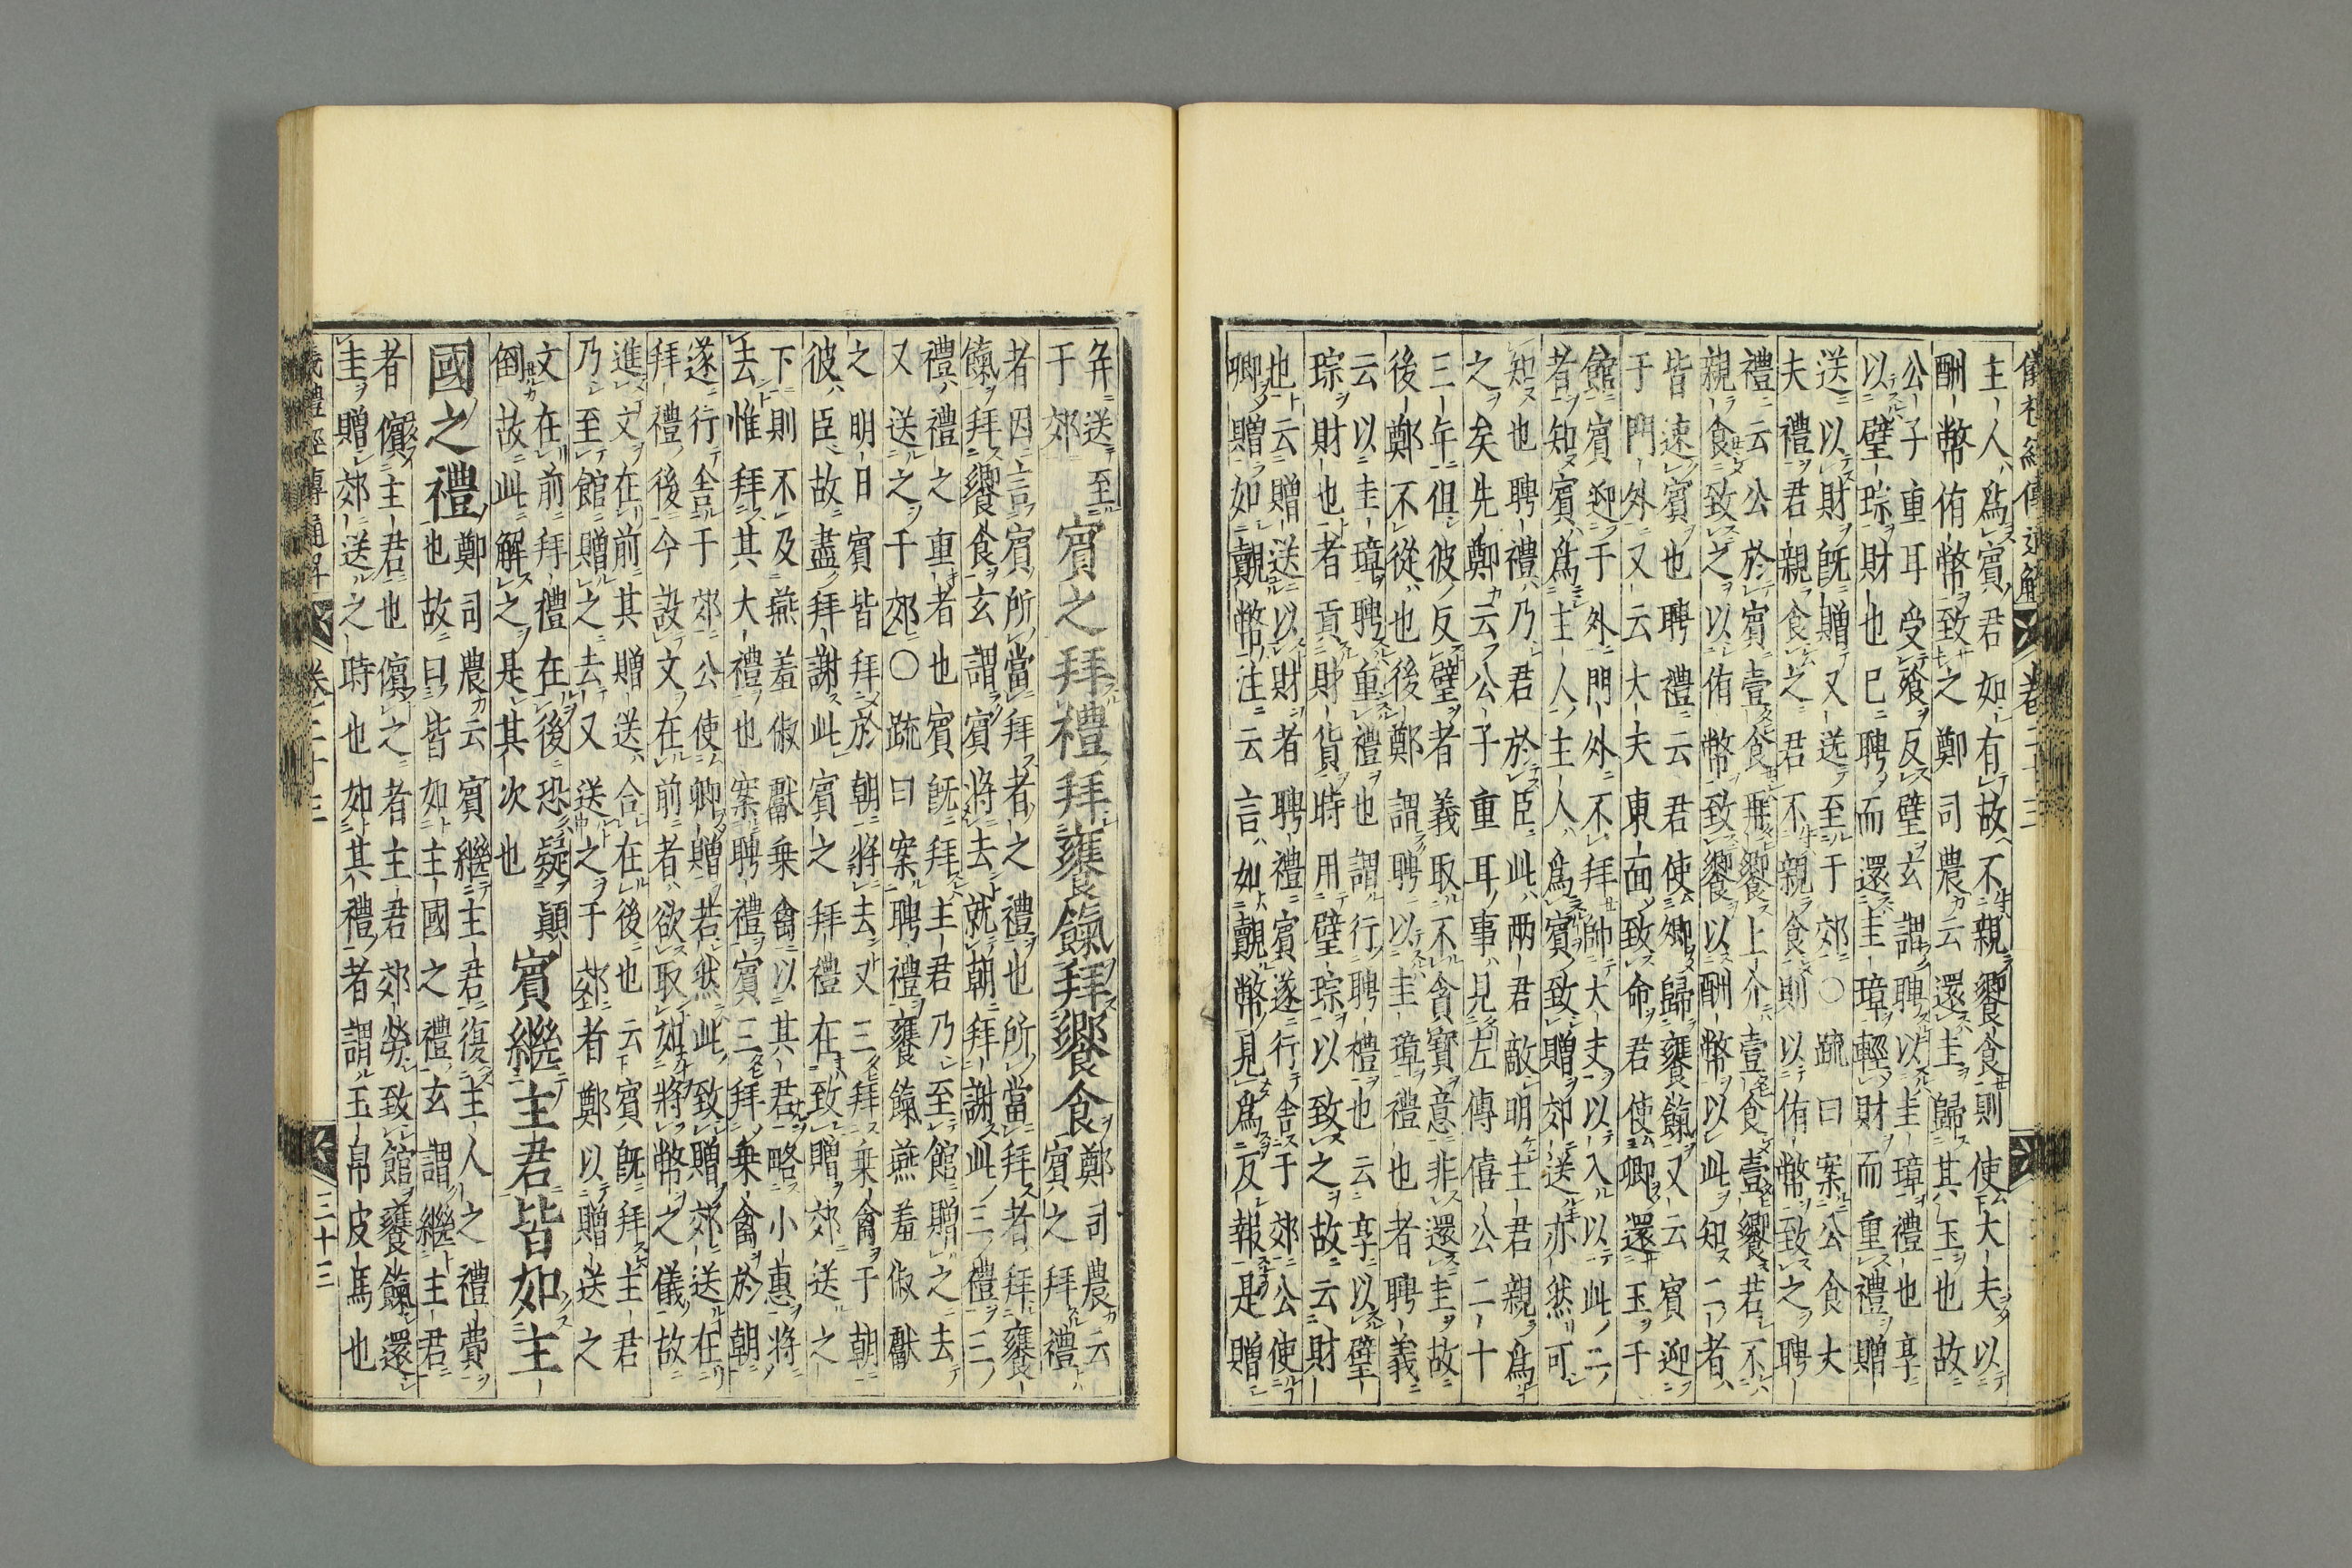 儀禮經傳通解 卷二十三
主人爲賓君如有故不親饗食則使大夫以
酬幣侑幣致之鄭司農云還圭歸其玉也故
公子重耳受飧反璧玄謂聘以圭璋禮也享
以璧琮財也已聘而還圭璋輕財而重禮贈
送以財既贈又送至于郊○疏曰案公食大
夫禮君親食之君不親食則以侑幣致之聘
禮云公於賓壹食再饗上介壹食壹饗若不
親食致之以侑幣致饗以酬幣以此知二者
皆速賓也聘禮云君使卿歸饔餼又云賓迎
于門外又云大夫東面致命君使卿還玉于
館賓迎于外門外不拜帥大夫以入以此二
者知賓爲主人主人爲賓致贈郊送亦然可
知也聘禮乃君於臣此兩君敵明主君親爲
之矣先鄭云公子重耳事見左傳僖公二十
三年但彼反璧者義取不貪寶意非還圭故
後鄭不從也後鄭謂聘以圭璋禮也者聘義
云以圭璋聘重禮也謂行聘禮也云享以璧
琮財也者貢財貨時用璧琮以致之故云財
也云贈送以財者聘禮賓遂行舍于郊公使
卿贈如覿幣注云言如覿幣見爲反報是贈
弁送至
于郊
賓之拜禮拜饔餼拜饗食
鄭司農云
賓之拜禮
者因言賓所當拜者之禮也所當拜者拜饔
餼拜饗食玄謂賓將去就朝拜謝此三禮三
禮禮之重者也賓既拜主君乃至館贈之去
又送之于郊○疏曰案聘禮饔餼燕羞俶獻
之明日賓皆拜於朝將去又三拜乘禽于朝
彼臣故盡拜謝此賓之拜禮在致贈郊送之
下則不及燕羞俶獻乘禽以其君略小惠將
去惟拜其大禮也案聘禮賓三拜乘禽於朝
遂行舍于郊公使卿贈若然此致贈郊送在
拜禮後今設文在前者欲取如將幣之儀故
進文在前其贈送合在後也云賓既拜主君
乃至館贈之去又送之于郊者鄭以贈送之
文在前拜禮在後恐疑顛
倒故此解之是其次也
賓繼主君皆如主
國之禮
鄭司農云賓繼主君復主人之禮費
也故曰皆如主國之禮玄謂繼主君
者儐主君也儐之者主君郊勞致館饔餼還
圭贈郊送之時也如其禮者謂玉帛皮馬也
儀禮經傳通解 卷二十三 三十三